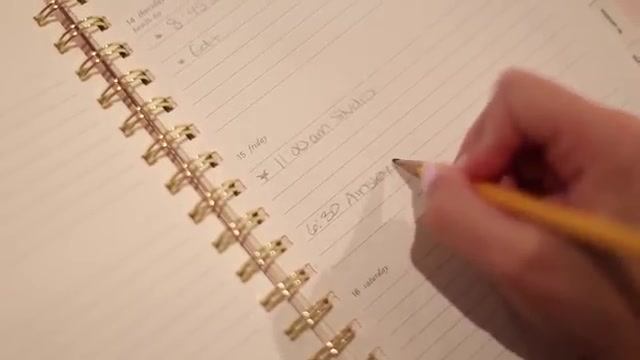 14 thursday
• 8:45
• Get
15 friday
* 11:00am Studio
6:30
16 saturday